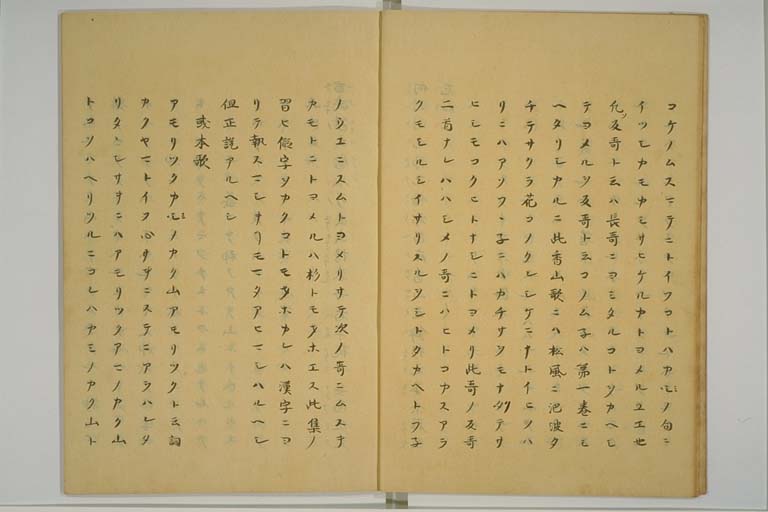 コケノムスマテニトイフコトハカミノ句ニ
イツシカモカミサヒケルカトヨメルユエ也
凡反哥ト云ハ長哥ニヨミタルコトヲカヘシ
テヨメルヲ反哥ト云コノム子ハ第一巻ニモ
ヘタリシカルニ此香山歌ニハ松風ニ池波タ
チテサクラ花コノクレシケニナトイヒツヽハ
リニハアソフ
ヒシモコクヒトナシニトヨメリ此哥ノ反哥
二首ナレハハシメノ哥ニハヒトコカスアラ
クモシルシイサリスルヲシトタカヘトフ子
ノウエニスムトヨメリサテ次ノ哥ニムスキ
カモトニトヨメルハ杉トモオホエス此集ノ
習ヒ假字ヲカクコトモオホカレハ漢字ニヨ
リテ執スマシサリモマタアヒマシハルヘシ
但正説アルヘシ
或本歌
アモリツクカミノカク山アモリツクト云詞
カクヤマトイフ心サキニステニアラハレタ
リタヽシサキニハアモリツクアマノカク山
トコソハヘリツルニコレハカミノカク山ト